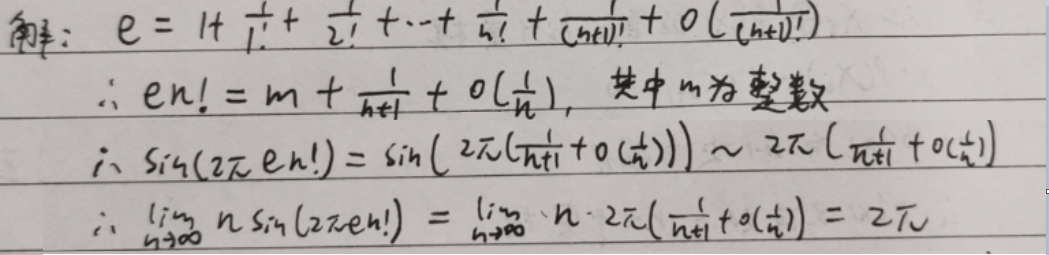 解: e = 1 + 1/1! + 1/2! + ⋯ + 1/n! + 1/(n+1)! + o(1/(n+1)!)
∴ en! = m + 1/(n+1) + o(1/n), 其中 m 为 整数
∴ sin(2π en!) = sin( 2π(1/(n+1) + o(1/n))) ~ 2π ( 1/(n+1) + o(1/n))
∴ lim_{n→∞} n sin(2πen!) = lim_{n→∞} n · 2π( 1/(n+1) + o(1/n)) = 2π